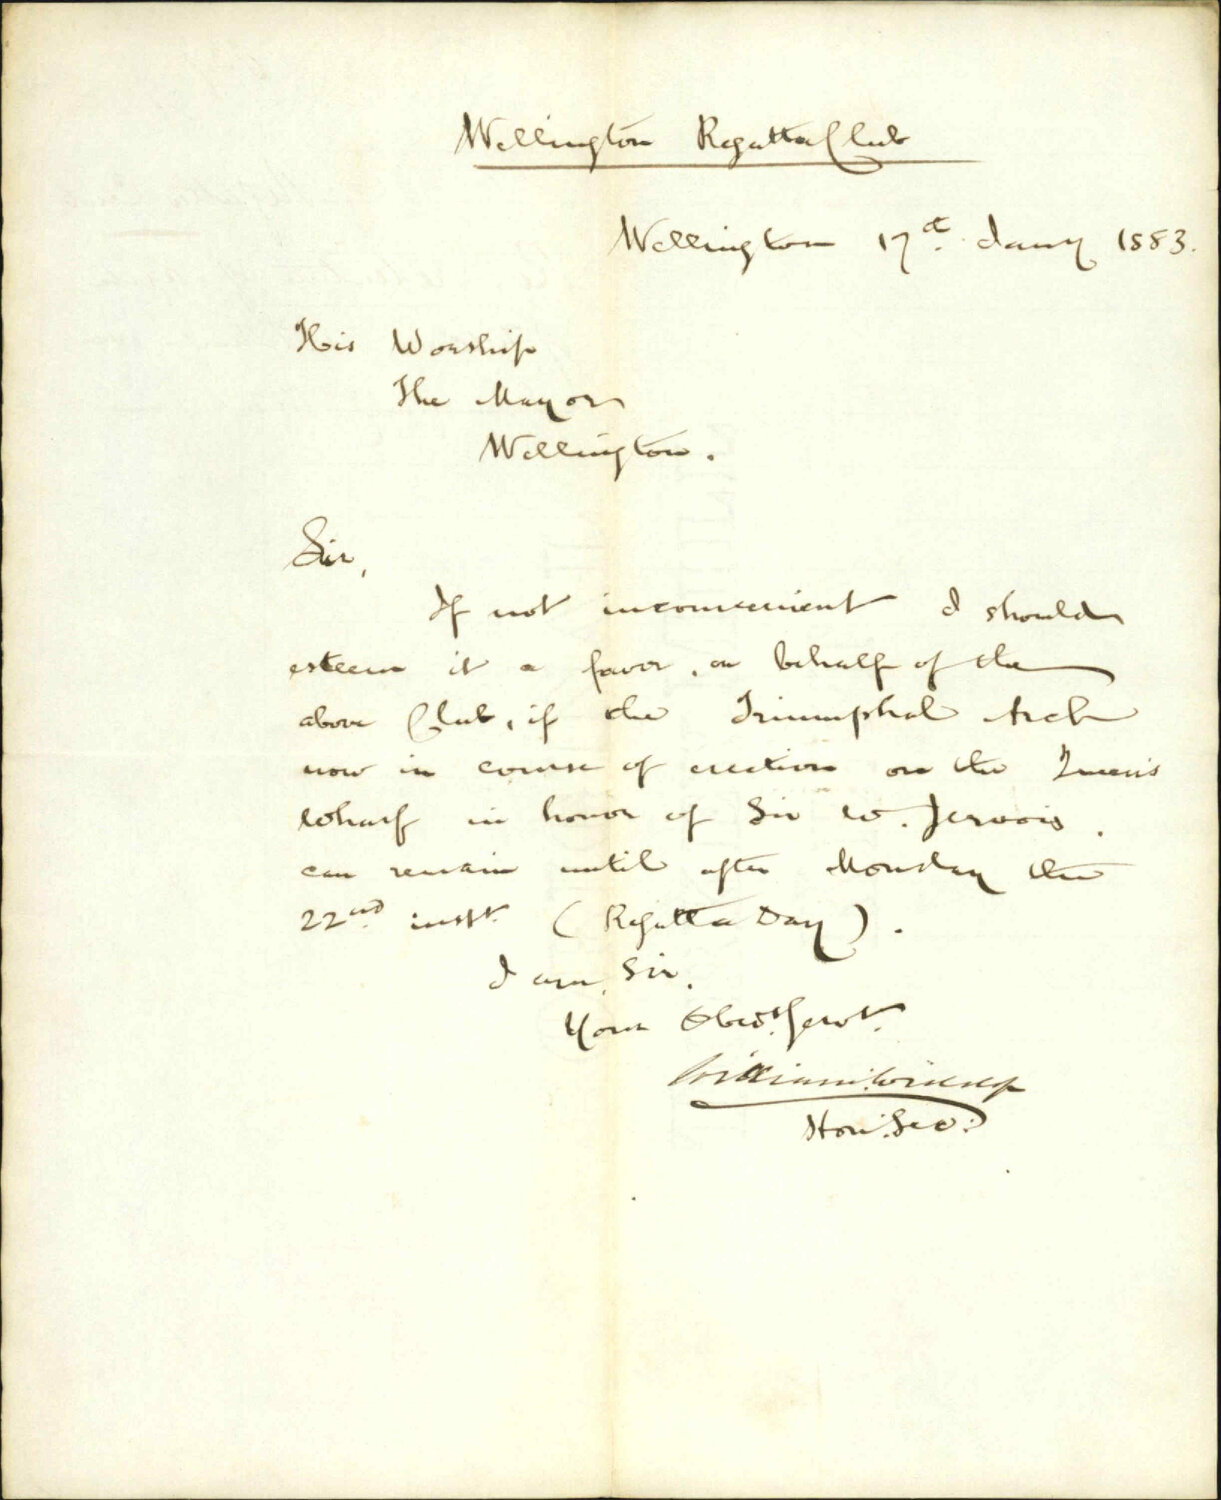 Wellington Regatta Club
Wellington 17th Jany 1883.
His Worship
The Mayor
Wellington.
Sir,
If not inconvenient I should
esteem it a favor, on behalf of the
above Club, if the Triumphal Arch
now in course of erection on the Queen's
Wharf in honor of Sir W. Jervois,
can remain until after Monday the
22nd instt. (Regatta Day).
I am, Sir,
Your Obedt. Servt.
William
Hon. Sec.